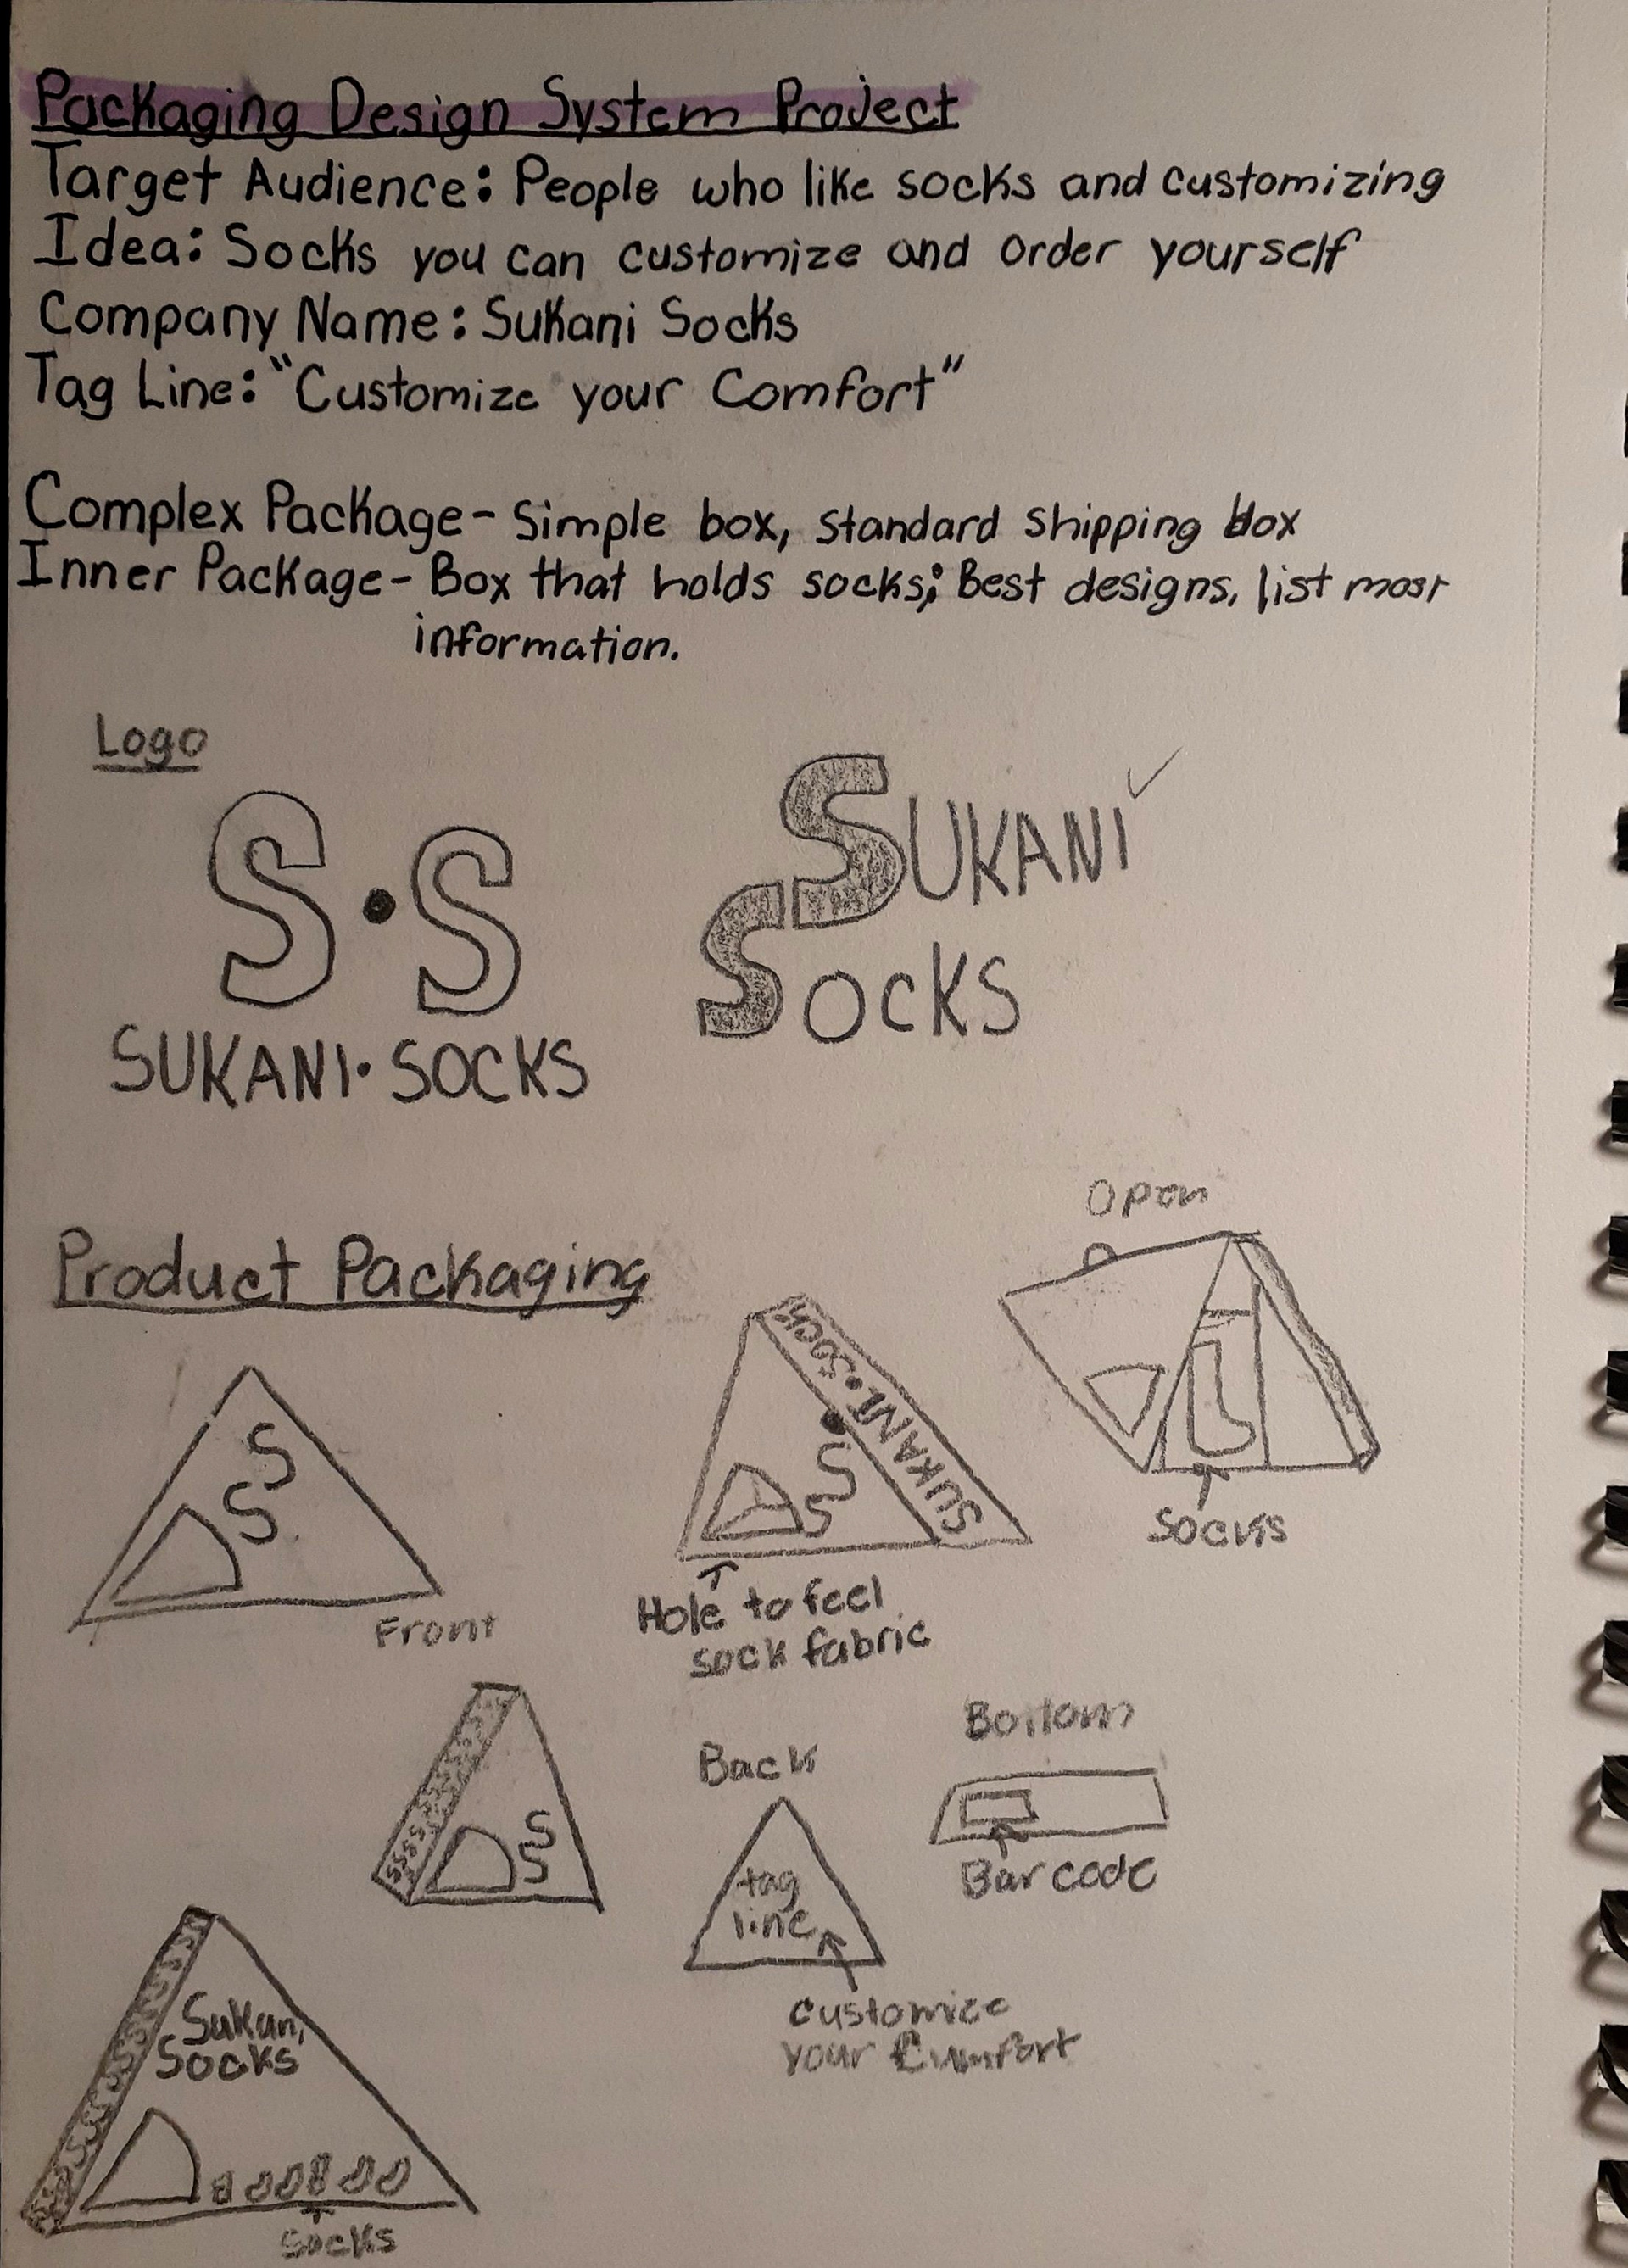 Packaging Design System Project
Target Audience: People who like socks and customizing
Idea: Socks you can customize and order yourself
Company Name: Sukani Socks
Tag Line: "Customize your Comfort"
Complex Package - Simple box, standard shipping box
Inner Package - Box that holds socks; Best designs, list most
information.
Logo
S•S
SUKANI•SOCKS
SUKANI
SOCKS
Product Packaging
Open
SUKANI•SOCK
S
S
S
S
Socks
Front
Hole to feel
sock fabric
SSSS
S
S
Back
tag
line
Bottom
Barcode
customize
your Comfort
Sukani
Socks
Socks